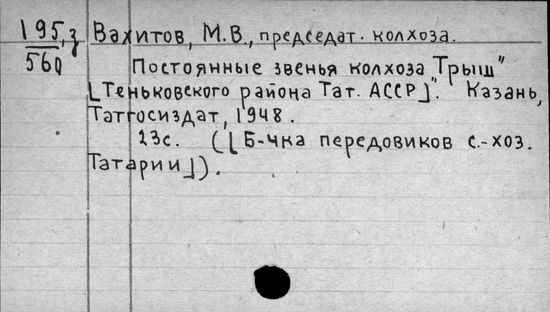 195,3 Вахитов, М.В., председат. колхоза.
560 Постоянные звенья колхоза Трыш"
[Теньковского района Тат. АССР]". Казань,
Татгосиздат, 1948.
23с. ([Б-чка передовиков с.-хоз.
Татарии]).